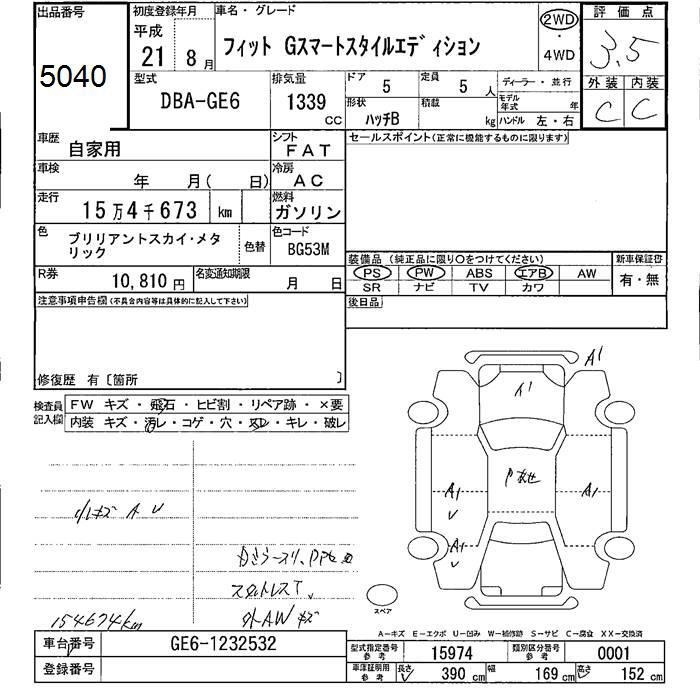 出品番号
5040
初度登録年月
平成
21 8月
車名・グレード
フィット Gスマートスタイルエディション
2WD
・
4WD
評価点
3.5
外装 内装
C C
型式
DBA-GE6
排気量
1339
CC
ドア
5
定員
5 人
ディーラー・並行
モデル年式 年
形状
ハッチB
積載
kg
ハンドル 左・右
車歴
自家用
シフト
FAT
セールスポイント(正常に機能するものに限ります)
車検
年 月( 日)
冷房
AC
走行
15万4千673 km
燃料
ガソリン
色
ブリリアントスカイ・メタ
リック
色替
色コード
BG53M
装備品(純正品に限り○をつけてください)
PS PW ABS エアB AW
SR ナビ TV カワ
新車保証書
有・無
R券
10,810 円
名変通知期限
月 日
後日品
注意事項申告欄(不具合内容等は具体的に記入して下さい)
修復歴 有〔箇所 〕
検査員
記入欄
FW キズ・飛石・ヒビ割・リペア跡・×要
内装 キズ・汚レ・コゲ・穴・スレ・キレ・破レ
小キズ A U
スタットレスT、
外AWキズ
154674km
A1
A1
A1
A1
A1
スペア
A―キズ E―エクボ U―凹み W―補修跡 S―サビ C―腐食 XX―交換済
車台番号
GE6-1232532
登録番号
型式指定番号
参考
15974
類別区分番号
参考
0001
車庫証明用
参考
長さ
390 cm
幅
169 cm
高さ
152 cm